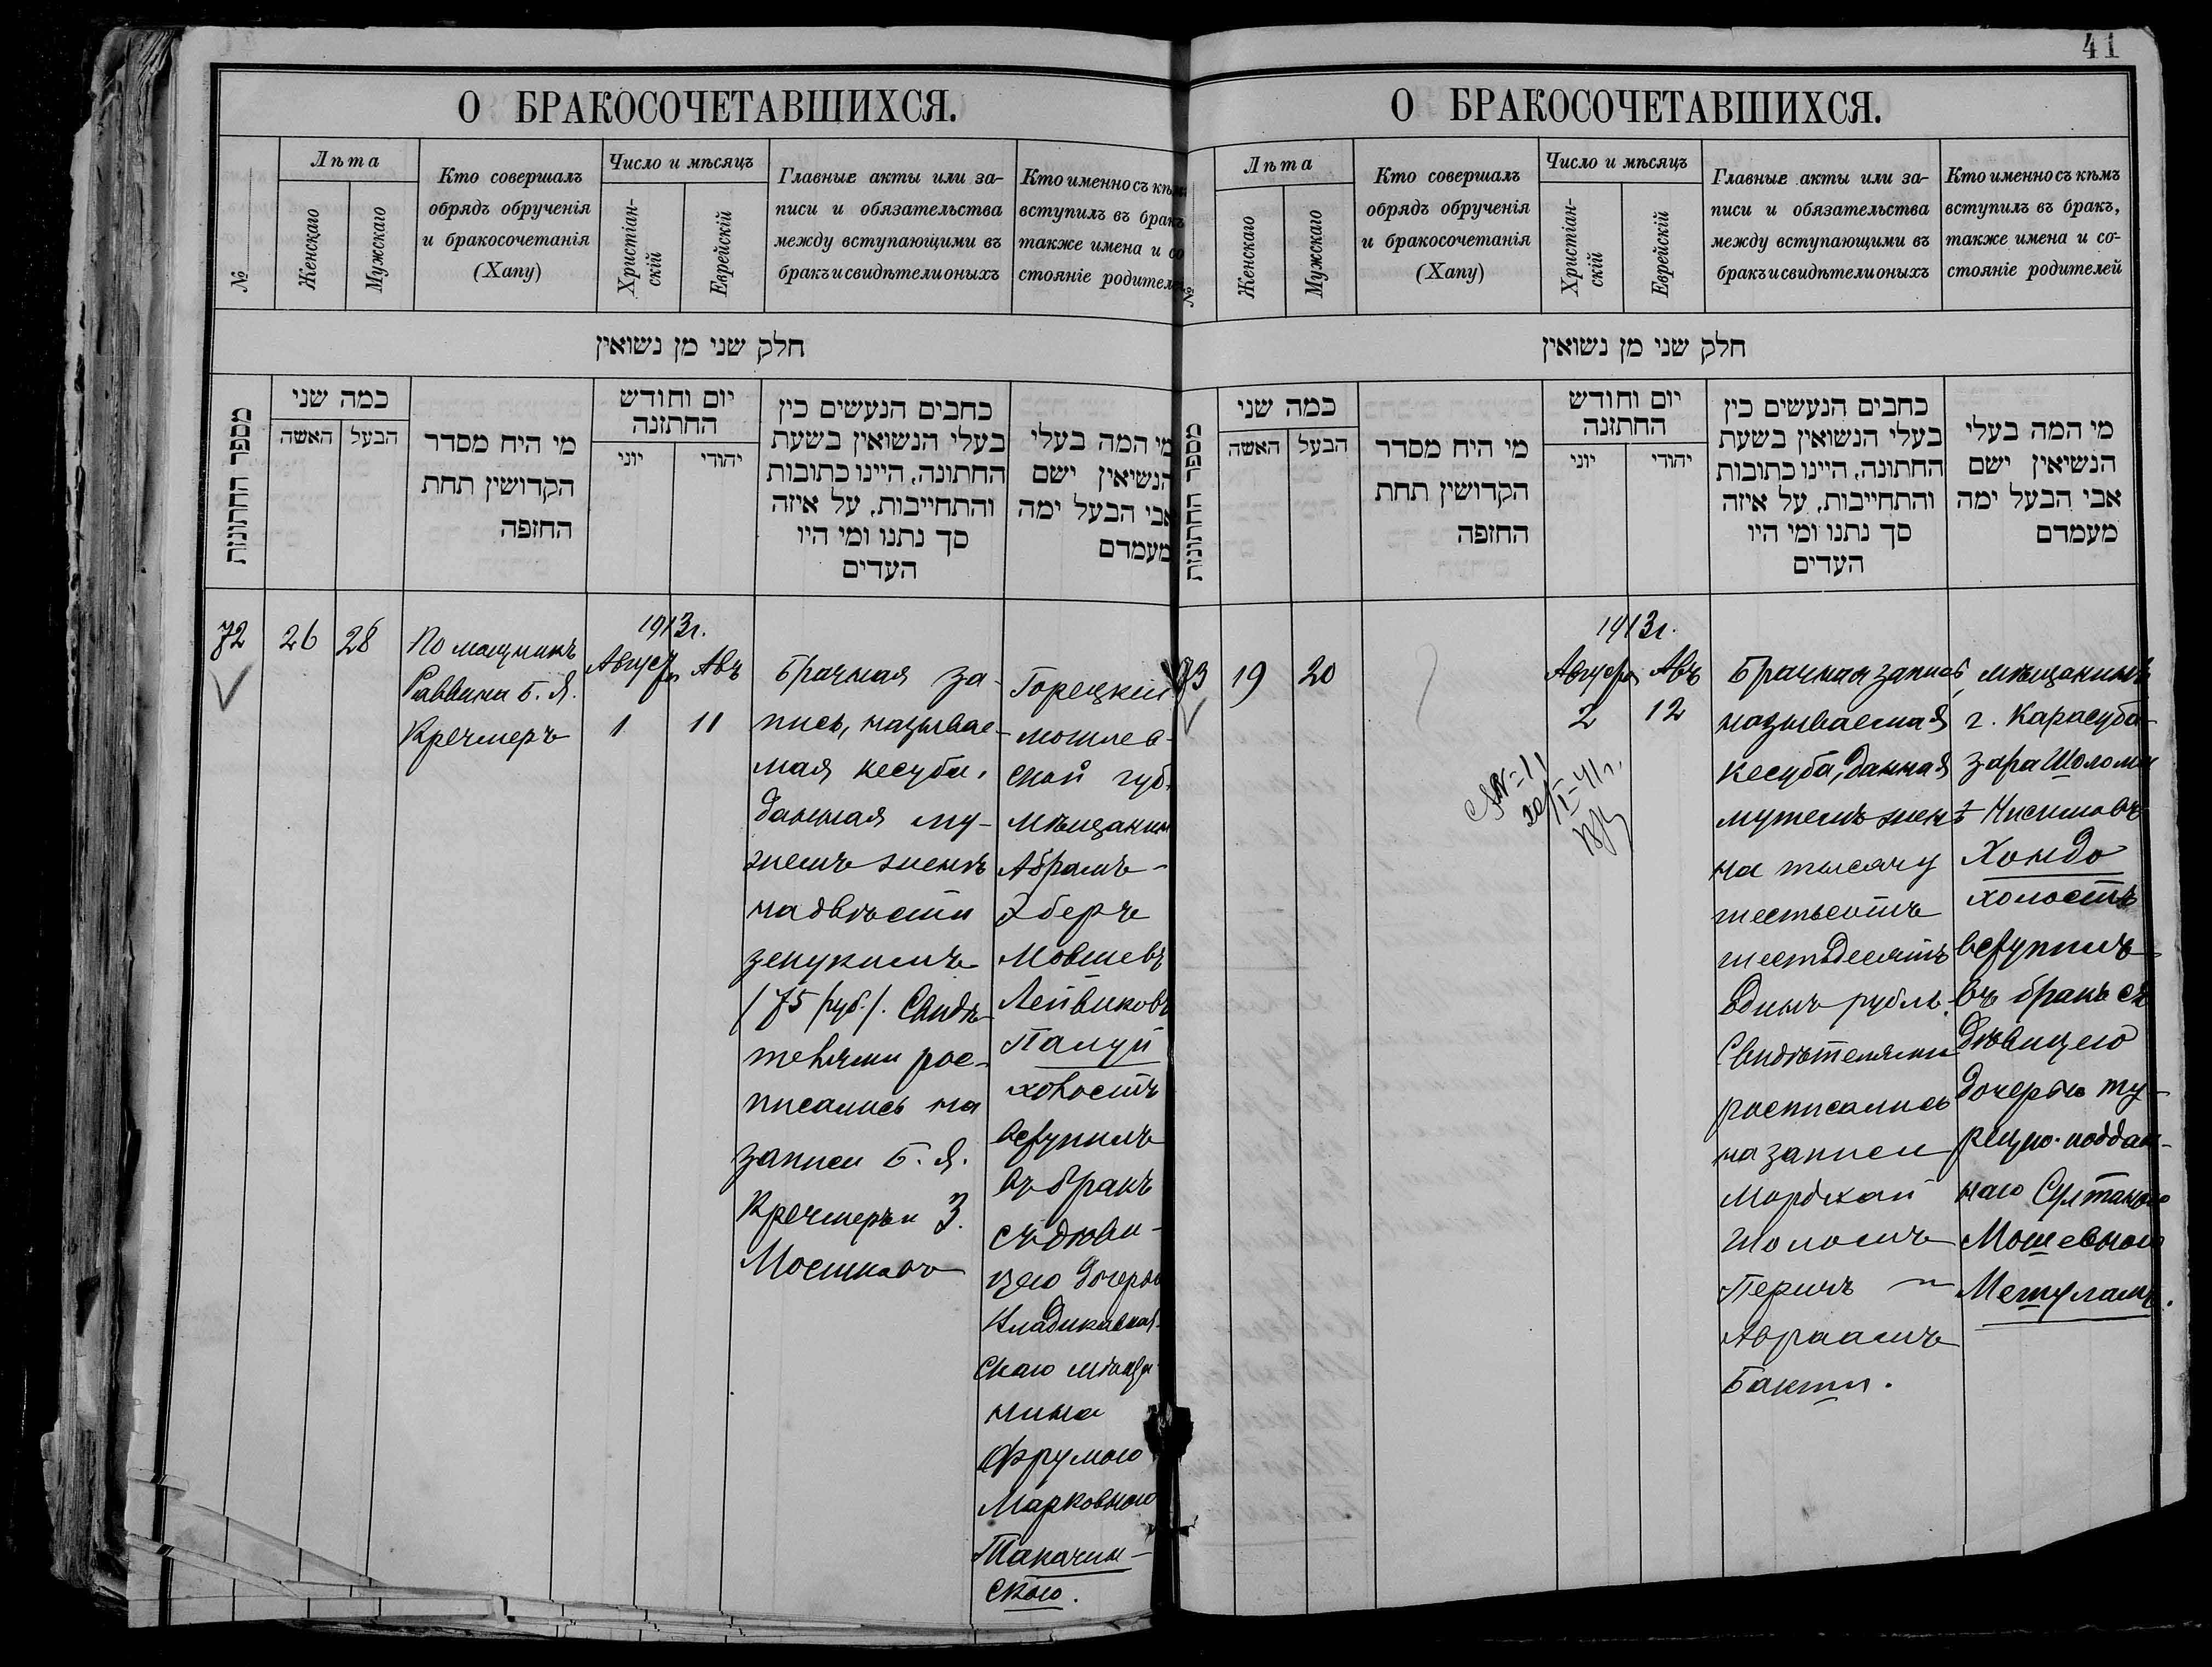 О БРАКОСОЧЕТАВШИХСЯ.
№
Лѣта
Женскаго
Мужскаго
Кто совершалъ
обрядъ обрученія
и бракосочетанія
(Хапу)
Число и мѣсяцъ
Христіан-
скій
Еврейскій
Главные акты или за-
писи и обязательства
между вступающими въ
бракъ и свидѣтели оныхъ
Кто именно съ кѣмъ
вступилъ въ бракъ
также имена и со
стояніе родителей
חלק שני מן נשואין
מספר החתונות
כמה שני
האשה
הבעל
מי היח מסדר
הקדושין תחת
החזפה
יום וחודש
החתזנה
יוני
יהודי
כחבים הנעשים כין
בעלי הנשואין בשעת
החתונה, היינו כתובות
והתחייבות, על איזה
סך נתנו ומי היו
העדים
מי המה בעלי
הנשיאין ישם
אבי הבעל ימה
מעמדם
72
26
28
Помощникъ
Раввина Б. Я.
Кречмеръ
1913г.
Августъ
Авъ
1
11
Брачная за-
пись, называе-
мая кесуба,
данная му-
жемъ женѣ
на двѣсти
зекукимъ
/75 руб./. Свидѣ-
телями рос-
писались на
записи Б. Я.
Кречмеръ и З.
Мосинковъ
Горецкій
могилев-
ской губ.
мѣщанин
Абрамъ-
Аберъ
Мовшевъ
Лейвиковъ
холостъ
вступилъ
въ бракъ
съ дѣви-
цею дочерью
Владикавказ-
скаго мѣща-
нина
Фрумою
Марковною
Такачин-
скою.
41
О БРАКОСОЧЕТАВШИХСЯ.
№
Лѣта
Женскаго
Мужскаго
Кто совершалъ
обрядъ обрученія
и бракосочетанія
(Хапу)
Число и мѣсяцъ
Христіан-
скій
Еврейскій
Главные акты или за-
писи и обязательства
между вступающими въ
бракъ и свидѣтели оныхъ
Кто именно съ кѣмъ
вступилъ въ бракъ,
также имена и со-
стояніе родителей
חלק שני מן נשואין
מספר החתונות
כמה שני
האשה
הבעל
מי היח מסדר
הקדושין תחת
החזפה
יום וחודש
החתזנה
יוני
יהודי
כחבים הנעשים כין
בעלי הנשואין בשעת
החתונה, היינו כתובות
והתחייבות, על איזה
סך נתנו ומי היו
העדים
מי המה בעלי
הנשיאין ישם
אבי הבעל ימה
מעמדם
73
19
20
1913г.
Августъ
Авъ
2
12
Брачная запись,
называемая
кесуба, данная
мужемъ женѣ
на тысячу
шестьсотъ
шестьдесятъ
одинъ рубль.
Свидѣтелями
росписались
на записи
Мордхай
Шоломъ
Перичъ и
Авраамъ
Бакши.
мѣщанинъ
г. Карасуба-
зара Шоломъ
Нисимовъ
Хондо
холостъ
вступилъ
въ бракъ съ
дѣвицею
дочерью ту-
рецко-поддан-
наго Султаною
Мошевною
Мешуламъ.